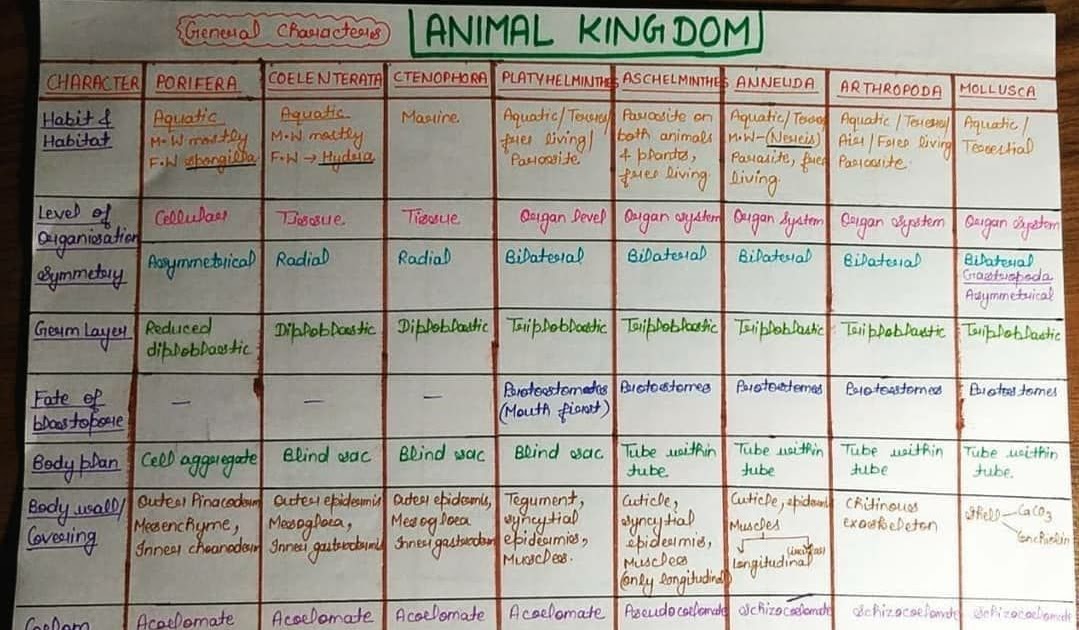 General Characters
ANIMAL KINGDOM
CHARACTER PORIFERA COELENTERATA CTENOPHORA PLATYHELMINTHES ASCHELMINTHES ANNELIDA ARTHROPODA MOLLUSCA
Habit & Aquatic Aquatic Marine Aquatic/Terres/ Parasite on Aquatic/Terres Aquatic/Terres/ Aquatic/
Habitat M.W mostly M.W mostly free living/ both animals M.W-(Nereis) Air/Free living Terrestial
F.W spongilla F.W → Hydra Parasite & plants, Parasite, free Parasite
free living living.
Level of Cellular Tissue Tissue Organ level Organ system Organ System Organ System Organ System
Organisation
Symmetry Asymmetrical Radial Radial Bilaterial Bilaterial Bilaterial Bilaterial Bilaterial
Gastropoda
Asymmetrical
Germ Layer Reduced Diploblastic Diploblastic Triploblastic Triploblastic Triploblastic Triploblastic Triploblastic
diploblastic
Fate of — — — Protostomates Protostomes Protostomes Protostomes Protostomes
blastopore (Mouth first)
Body plan Cell aggregate Blind sac Blind sac Blind sac Tube within Tube within Tube within Tube within
tube tube tube tube.
Body wall/ Outer Pinacoderm Outer epidermis Outer epidermis, Tegument, Cuticle, Cuticle, epidermis Chitinous Shell CaCO3
Covering Mesenchyme, Mesogloea, Mesogloea syncytial syncytial Muscles exoskeleton Conchiolin
Inner choanoderm Inner gastrodermis Inner gastroderm epidermis, epidermis, Longitudinal circular
Muscles. Muscles
(only longitudinal)
Coelom Acoelomate Acoelomate Acoelomate Acoelomate Pseudocoelomate Schizocoelomate Schizocoelomate Schizocoelomate